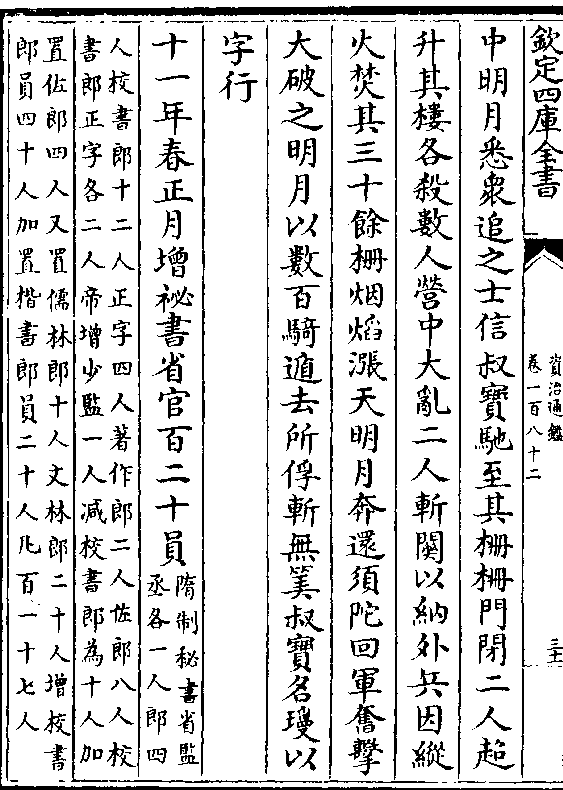 欽定四庫全書
資治通鑑
卷一百八十二
三十
中明月悉衆追之士信叔寶馳至其栅栅門閉二人超
升其樓各殺數人營中大亂二人斬關以納外兵因縱
火焚其三十餘栅烟熖漲天明月奔還須陀回軍奮擊
大破之明月以數百騎遁去所俘斬無筭叔寶名瓊以
字行
十一年春正月增祕書省官百二十員
隋制秘書省監
丞各一人郎四
人校書郎十二人正字四人著作郎二人佐郎八人校
書郎正字各二人帝增少監一人減校書郎為十人加
置佐郎四人又置儒林郎十人文林郎二十人增校書
郎員四十人加置楷書郎員二十人凡百一十七人